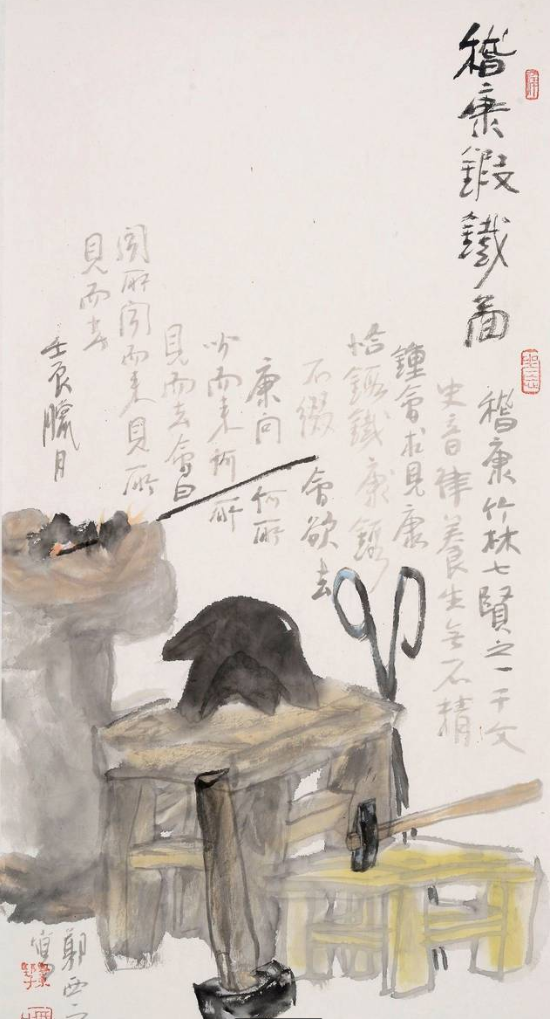 稽康鍛鐵圖
稽康竹林七賢之一于文
史音律養生無不精
鐘會求見康
恰鍛鐵康鍛
不綴會欲去
康問何所
聞而來何所
見而去會曰
聞所聞而來見所
見而去
壬辰臘月